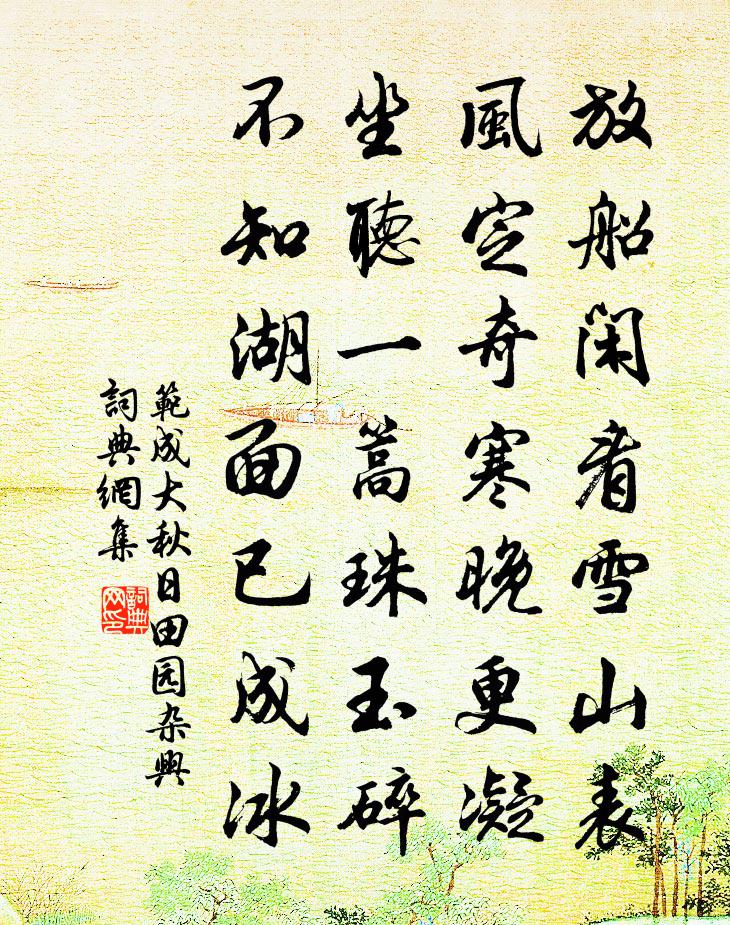 放船闲看雪山表
風定奇寒晚更凝
坐聽一篙珠玉碎
不知湖面已成冰
範成大秋日田园杂興
詞典網集
詞典网印